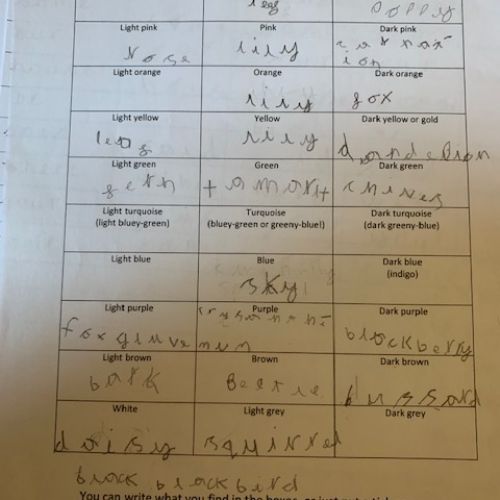 leaf poppy
Light pink Pink Dark pink
Nose lily carnat
ion
Light orange Orange Dark orange
lily fox
Light yellow Yellow Dark yellow or gold
leaf lily dandelion
Light green Green Dark green
fern tamart chives
Light turquoise Turquoise Dark turquoise
(light bluey-green) (bluey-green or greeny-blue!) (dark greeny-blue)
Light blue Blue Dark blue
sky (indigo)
Light purple Purple Dark purple
foxgluve num blackberry
Light brown Brown Dark brown
bark Beetle bussard
White Light grey Dark grey
daisy squirrel
black blackbird
You can write what you find in the boxes, or just